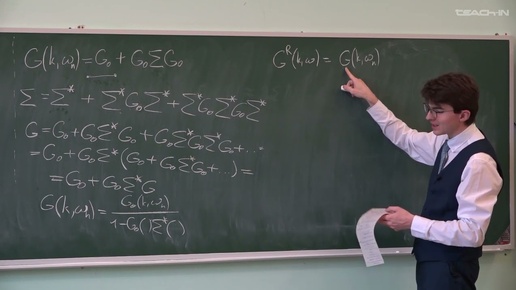 TEACH-IN
G(k,ωₙ) = G₀ + G₀ΣG₀
Σ = Σ* + Σ*G₀Σ* + Σ*G₀Σ*G₀Σ*
G = G₀ + G₀Σ*G₀ + G₀Σ*G₀Σ*G₀ + ...
= G₀ + G₀Σ*(G₀ + G₀Σ*G₀ + ...) =
= G₀ + G₀Σ*G
G(k,ωₙ) = G₀(k,ωₙ) / 1-G₀()Σ*()
Gᴿ(k,ω) = G(k,ωₙ)